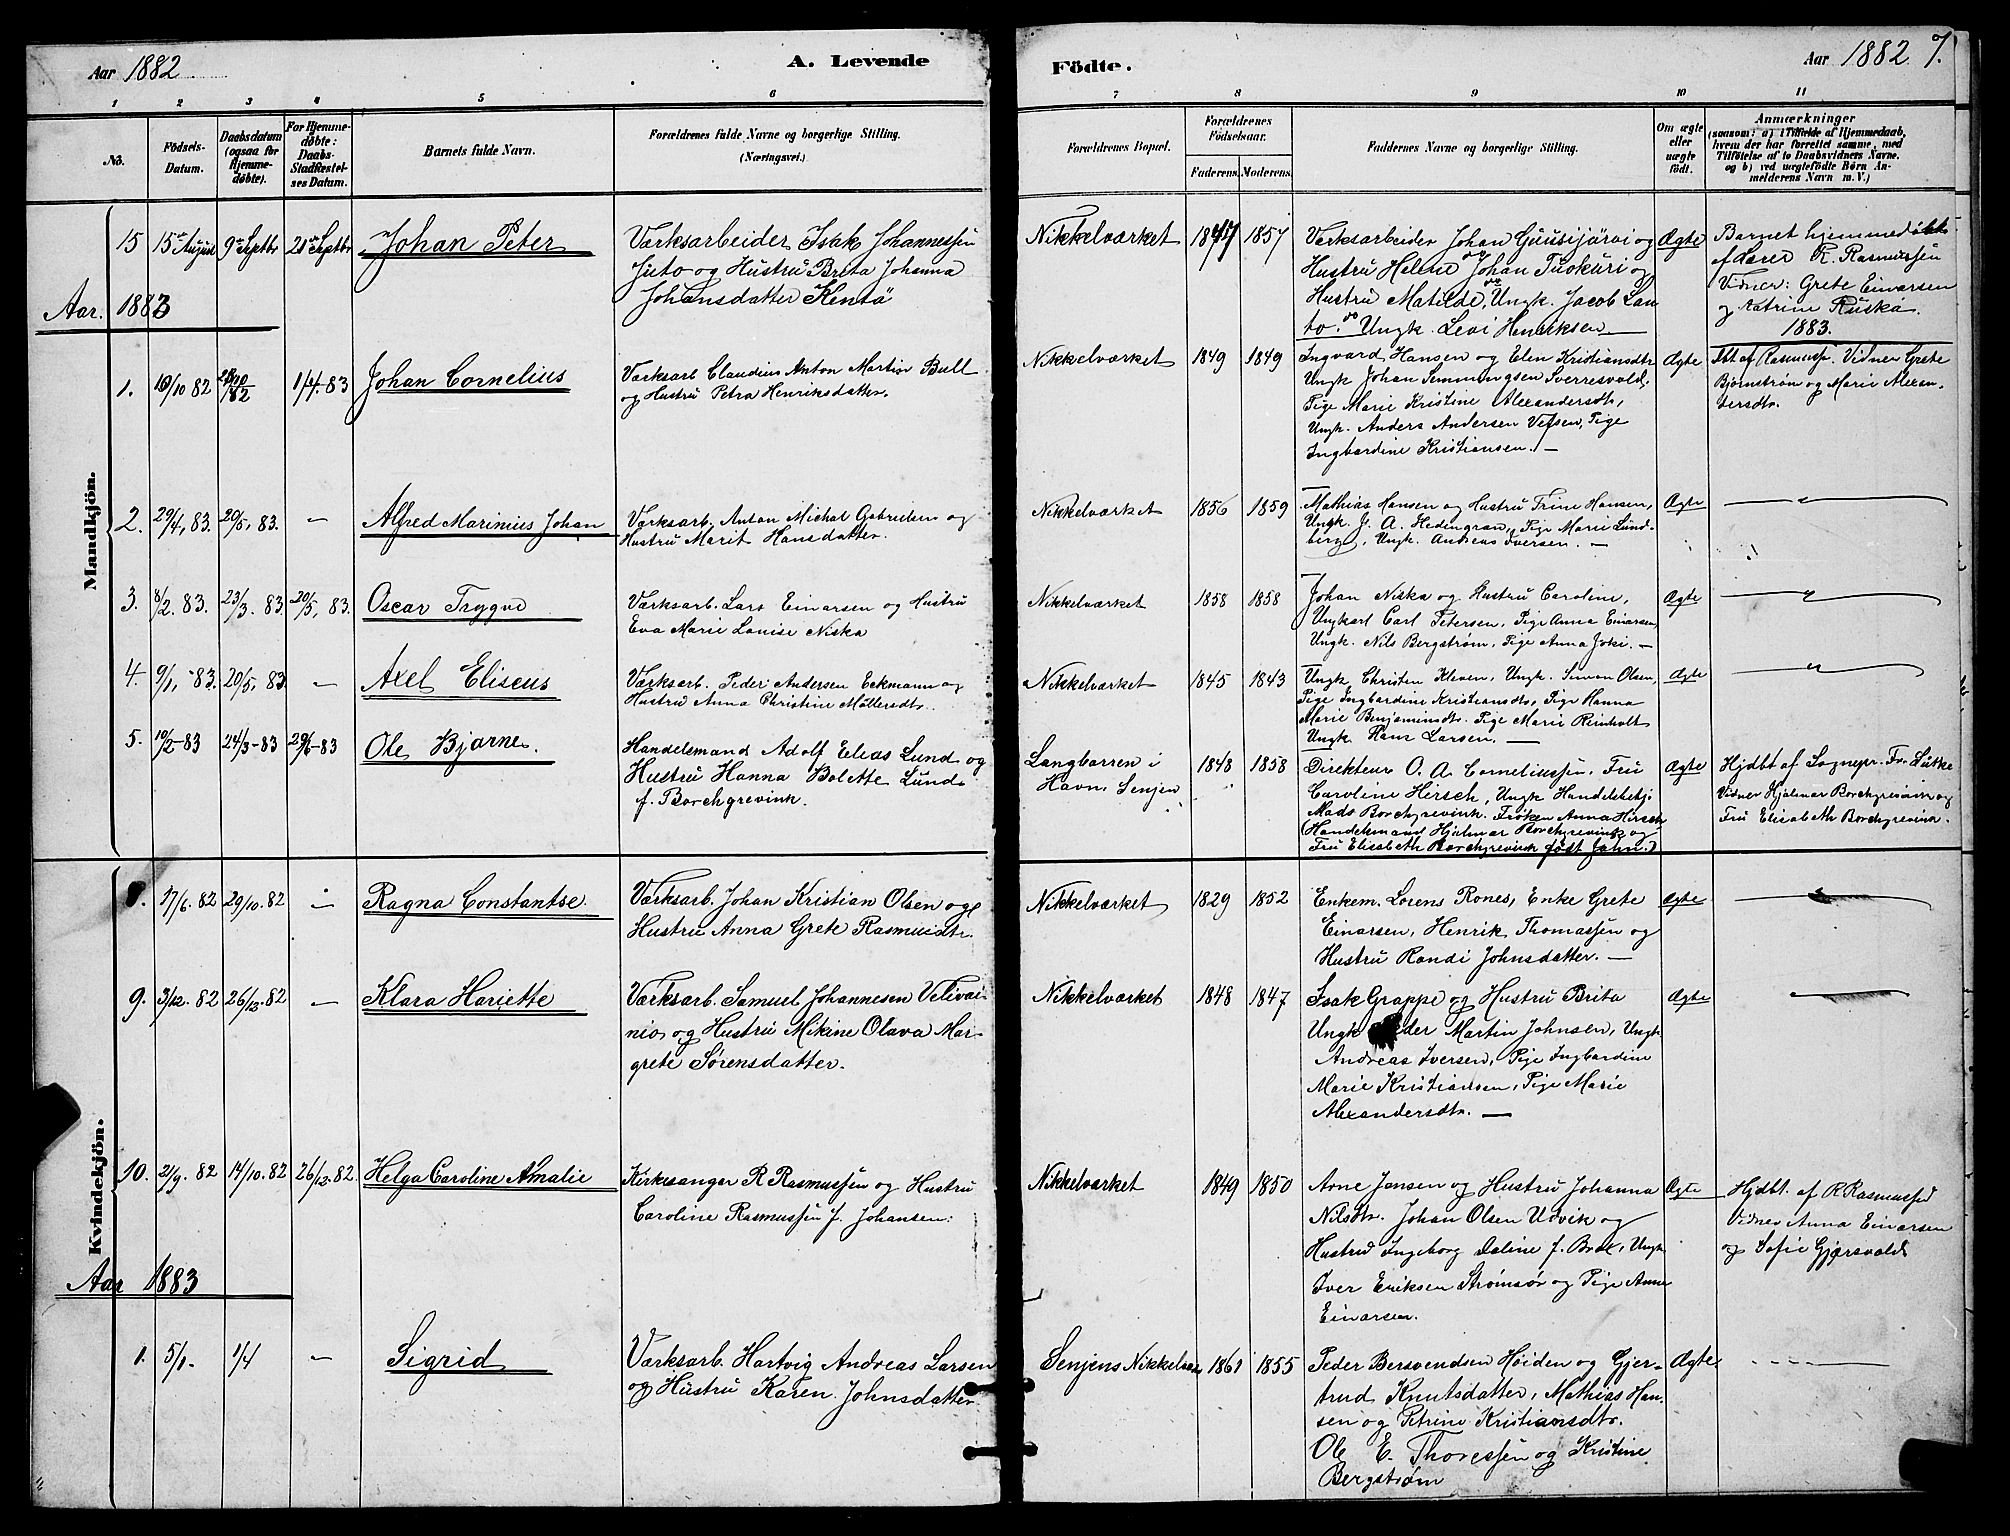 Aar 1882
A. Levende
Födte.
Aar 1882
7.
1 2 3 4 5 6 7 8 9 10 11
No.
Födsels-
Datum.
Daabsdatum
(ogsaa for
Hjemme-
døbte).
For Hjemme-
døbte:
Daabs-
Stadfæstel-
ses Datum.
Barnets fulde Navn.
Forældrenes fulde Navne og borgerlige Stilling.
(Næringsvei.)
Forældrenes Bopæl.
Forældrenes
Födselsaar.
Faderens. Moderens.
Faddernes Navne og borgerlige Stilling.
Om ægte
eller
uægte
födt.
Anmærkninger
(saasom: a) i Tilfælde af Hjemmedaab,
hvem der har forrettet samme, med
Tilføielse af to Daabsvidners Navne.
og b) ved uægtefödte Börn An-
melderens Navn m. V.)
Mandkjön.
15 15de August 9de Septbr 21de Septbr Johan Peter
Værksarbeider Isak Johannessen
Juto og Hustru Brita Johanna
Johansdatter Kentä
Nikkelværket 1847 1857
Værksarbeider Johan Guusijärvi og
Hustru Helene, do Johan Tuokuri og
Hustru Matilde, do Ungk. Jacob Lan-
to, do Ungk. Levi Henriksen
Ægte
Barnet hjemmedöbt
af Lærer R. Rasmussen
Vidner: Grete Einarsen
og Katrine Ruska.
Aar. 1883
1883.
1. 10/10 82 28/10/82 1/4-83 Johan Cornelius
Værksarb Claudius Anton Martin Bull
og Hustru Petra Henriksdatter.
Nikkelværket 1849 1849
Ingvard Hansen og Elen Kristiansdtr
Ungk Johan Simmingsen Sverresvold,
Pige Marie Kristine Alexandersdtr,
Ungk. Anders Andersen Vefsen, Pige
Ingbardine Kristiansen. —
Ægte
Dbt af Rasmuss. Vidner Grete
Bjørnstrøm og Marie Alexan-
dersdtr.
2. 29/4, 83. 20/5, 83. — Alfred Marinius Johan
Værksarb. Anton Michal Gabrielsen og
Hustru Marit Hansdatter.
Nikkelværket 1856 1859
Mathias Hansen og Hustru Trine Hansen,
Ungk. J. A. Hedengran, Pige Marie Lund-
berg, Ungk. Andreas Iversen. —
Ægte
3. 8/2. 83. 23/3. 83 20/5, 83. Oscar Trygve
Værksarb. Lars Einarsen og Hustru
Eva Marie Louise Niska
Nikkelværket 1858 1858
Johan Niska og Hustru Caroline,
Ungkarl Carl Petersen, Pige Anna Einarsen,
Ungk. Nils Bergstrøm, Pige Anna Joki. —
Ægte
4. 9/1, -83. 20/5, 83 — Axel Eliseus
Værksarb. Peder Andersen Eckmann og
Hustru Anna Christine Möllersdtr.
Nikkelværket 1845 1843
Ungk Christen Kleven, Ungk. Simon Olsen,
Pige Ingbardine Kristiansdtr, Pige Hanna
Marie Benjaminsdtr. Pige Marie Reinholt
Ungk Hans Larsen. —
Ægte
5. 10/2-83 24/3-83 29/6-83 Ole Bjarne.
Handelsmand Adolf Elias Lund og
Hustru Hanna Bolette Lund
f. Borchgrevink.
Langbarren i
Havn, Senjen
1848 1858
Direkteur O. A. Corneliussen. Fru
Caroline Hirsch, Ungk Handelsbetj.
Mads Borchgrevink. Frøken Anna Hirsch
(Handelsmand Hjalmar Borchgrevink og
Fru Elisabeth Borchgrevink født Jahn.)
Ægte
Hjdbt af Sognepr. Fr. Lütke
Vidner Hjalmar Borchgrevink og
Fru Elisabeth Borchgrevink.
Kvindekjön.
17/6. 82 29/10. 82 — Ragna Constantse
Værksarb. Johan Kristian Olsen og
Hustru Anna Grete Rasmusdtr.
Nikkelværket 1829 1852
Enkem. Lorens Rones, Enke Grete
Einarsen, Henrik Thomassen og
Hustru Randi Johnsdatter. —
Ægte
9. 3/12. 82 26/12. 82 — Klara Hariette
Værksarb. Samuel Johannesen Velivai-
nio og Hustru Mikine Olava Mar-
grete Sørensdatter.
Nikkelværket 1848 1847
Isak Grappe og Hustru Brita
Ungk Peder Martin Johnsen, Ungk
Andreas Iversen, Pige Ingbardine
Marie Kristiansen, Pige Marie
Alexandersdtr. —
Ægte
10. 21/9. 82 14/10. 82 26/12. 82. Helga Caroline Amalie
Kirkesanger R Rasmussen og Hustru
Caroline Rasmussen f. Johansen.
Nikkelværket 1849 1850
Arne Jensen og Hustru Johanna
Nilsdtr. Johan Olsen Udvik og
Hustru Ingeborg Daline f. Bræ, Ungk
Iver Eriksen Strømsør og Pige Anna
Einarsen.
Ægte
Hjdbt. af R Rasmussen
Vidner Anna Einarsen
og Sofie Gjersvold
Aar 1883
1. 5/1- 1/4 — Sigrid
Værksarb. Hartvig Andreas Larsen
og Hustru Karen Johnsdatter
Senjens Nikkelværk 1861 1855
Peder Bersvendsen Høiden og Gjer-
trud Knutsdatter, Mathias Han-
sen og Petrine Kristiansdtr.
Ole E. Thoressen og Kristine
Bergstrøm
Ægte